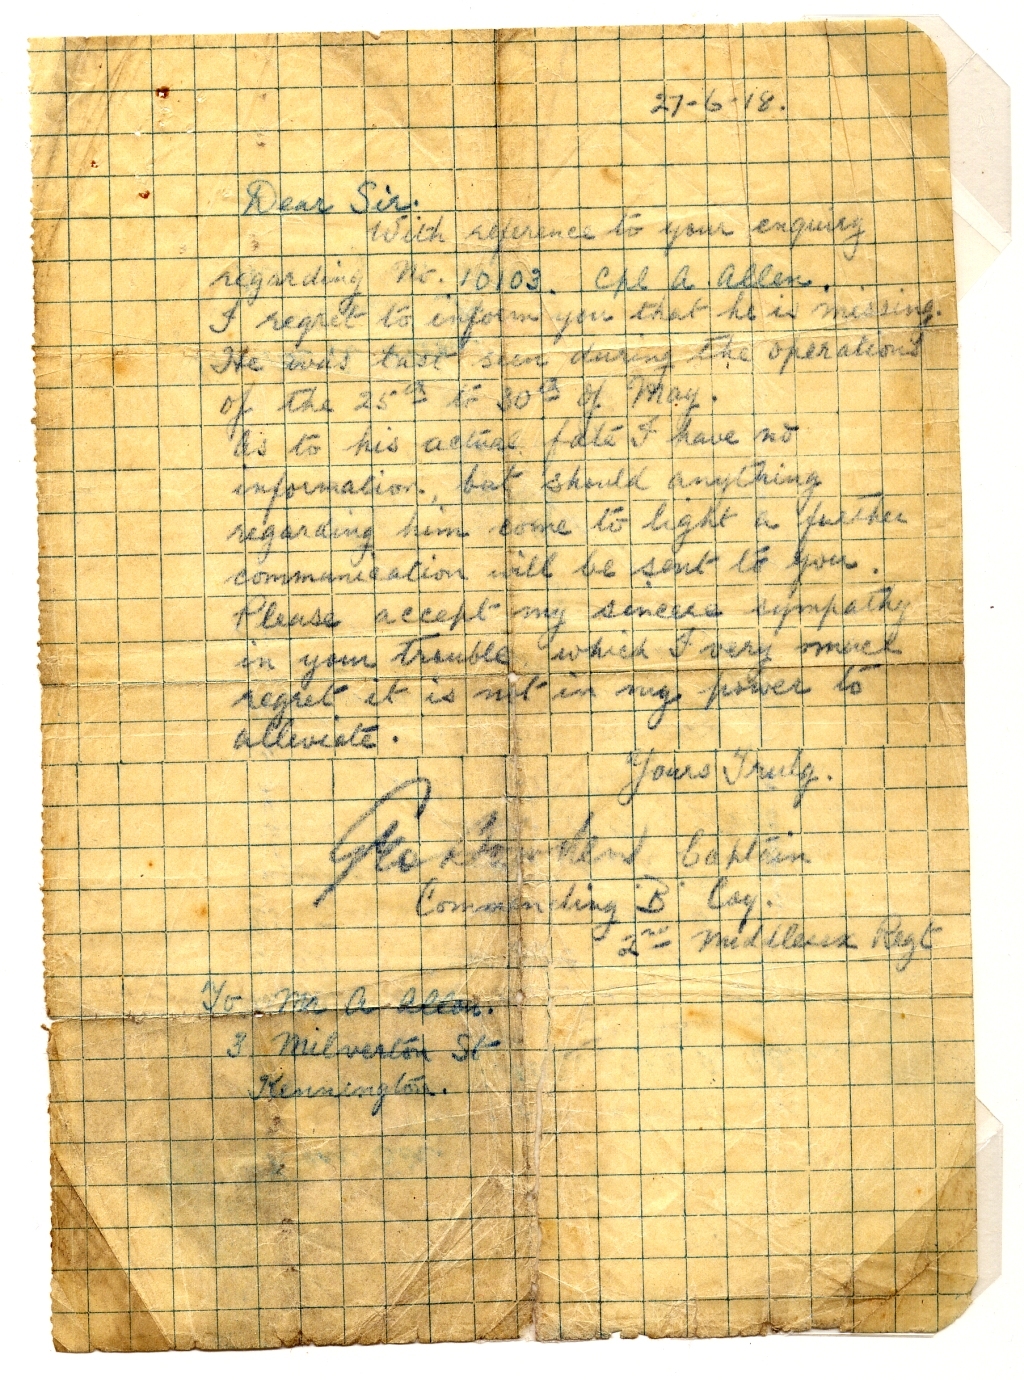 27-6-18.
Dear Sir.
With reference to your enquiry
regarding No. 10103. Cpl A Allen.
I regret to inform you that he is missing.
He was last seen during the operations
of the 25th to 30th of May.
As to his actual fate I have no
information, but should anything
regarding him come to light a further
communication will be sent to you.
Please accept my sincere sympathy
in your trouble which I very much
regret it is not in my power to
alleviate.
Yours Truly.
Captain
Commanding "B" Coy.
2nd Middlesex Regt
To Mr A Allen.
3 Milverton St
Kennington.